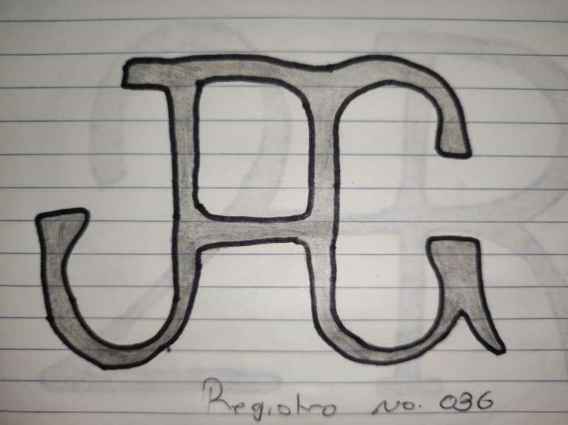 Registro No. 036